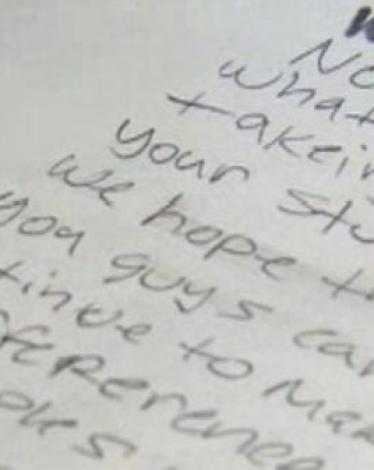 No
what
takein
your stu
we hope th
you guys can
tinue to mak
fference
oles